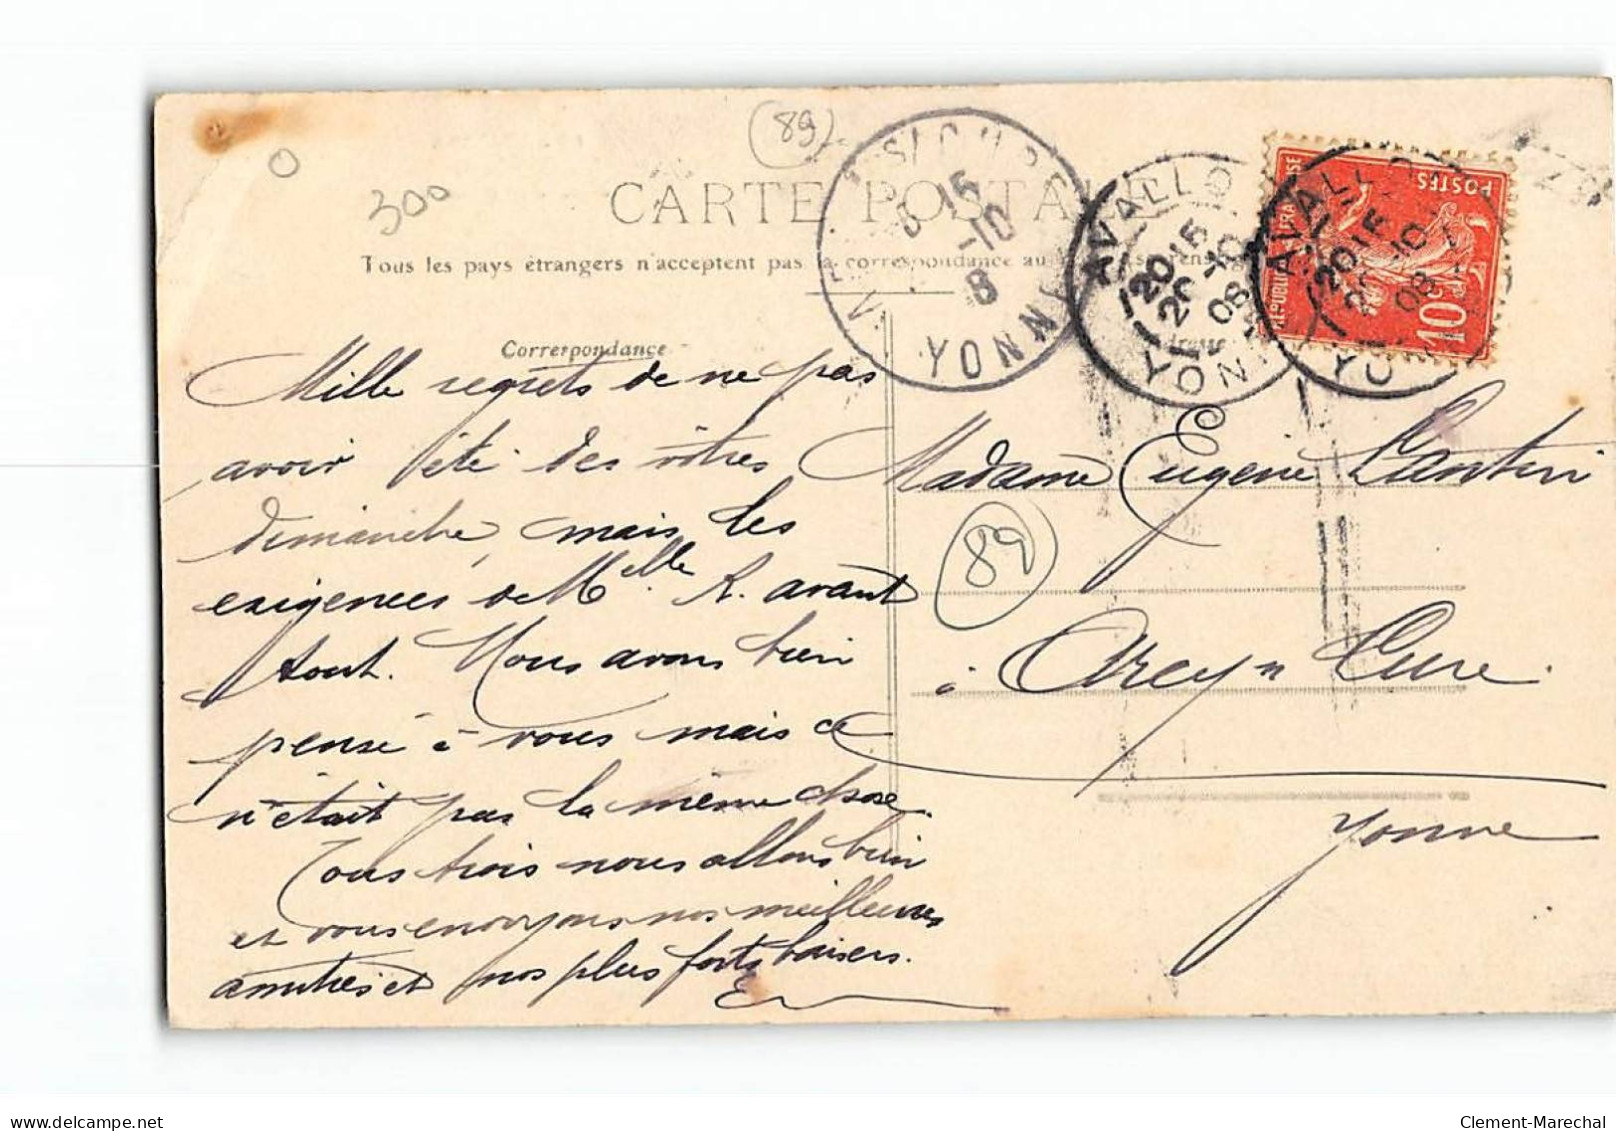 (89)
300
CARTE POSTALE
Tous les pays étrangers n'acceptent pas la correspondance au
YONNE
15
-10
8
AVALLON
20 15
20 -10
08
YONNE
AVALLON
20 15
20 -10
08
REPUBLIQUE FRANÇAISE
POSTES
10c
Correspondance
Mille regrets de ne pas
avoir été des vôtres
dimanche, mais les
exigences de Melle R. avant
tout. Nous avons bien
pensé à vous mais ce
n'était pas la même chose.
Tous trois nous allons bien
et vous envoyons nos meilleures
amitiés et nos plus forts baisers.
Madame Eugène Lantin
89
à Arcy s/ Cure
Yonne
Clement-Marechal